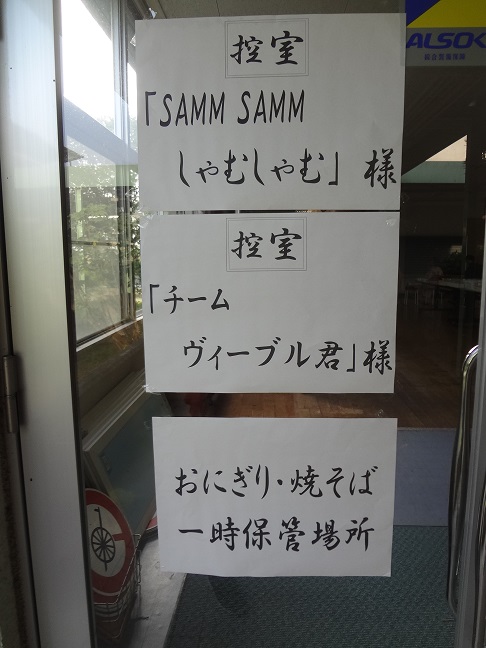 ALSOK
控室
「SAMM SAMM
しゃむしゃむ」様
控室
「チーム
ヴィーブル君」様
おにぎり・焼そば
一時保管場所